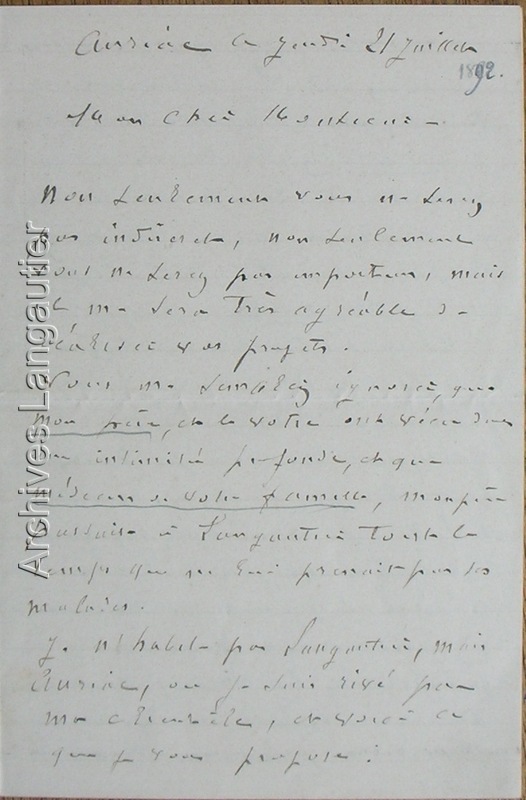 Auriac le jeudi 21 juillet
1892.
Mon cher Monsieur -
Non seulement vous ne serez
pas indiscret, non seulement
vous ne serez pas importun, mais
il me sera très agréable de
réaliser vos projets.
Vous me semblez ignorer, que
mon père, et le votre ont vécu dans
une intimité profonde, et que
médecin de votre famille, mon père
passait à Langautier tout le
temps que ne lui prenait pas ses
malades.
Je n'habite pas Langautier, mais
Auriac, ou je suis rivé par
ma clientèle, et voici ce
que je vous propose :
Archives Langautier